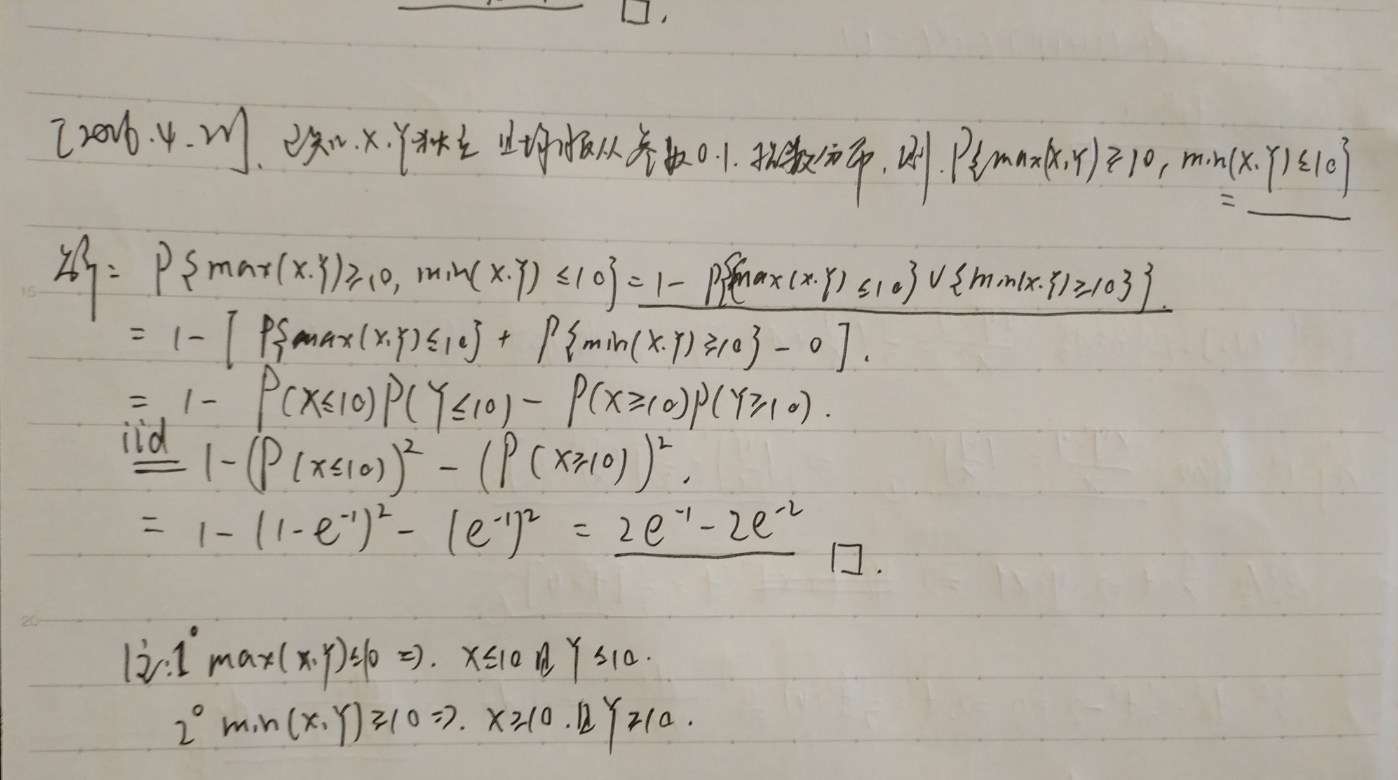 [2016.4.22]. 已知.X.Y独立且均服从参数0.1.指数分布.则.P{max(X,Y)≥10, min(X.Y)≤10}
= ______
解= P{max(X.Y)≥10, min(X.Y)≤10} = 1- P{{max(X.Y)≤10}∪{min(X.Y)≥10}}.
= 1-[ P{max(X.Y)≤10} + P{min(X.Y)≥10} - 0 ].
= 1- P(X≤10)P(Y≤10) - P(X≥10)P(Y≥10).
iid
= 1-(P(X≤10))² - (P(X≥10))².
= 1-(1-e⁻¹)² - (e⁻¹)² = 2e⁻¹-2e⁻² □.
15
20
注:1° max(X.Y)≤10 ⇒. X≤10且Y≤10.
2° min(X,Y)≥10 ⇒. X≥10.且Y≥10.